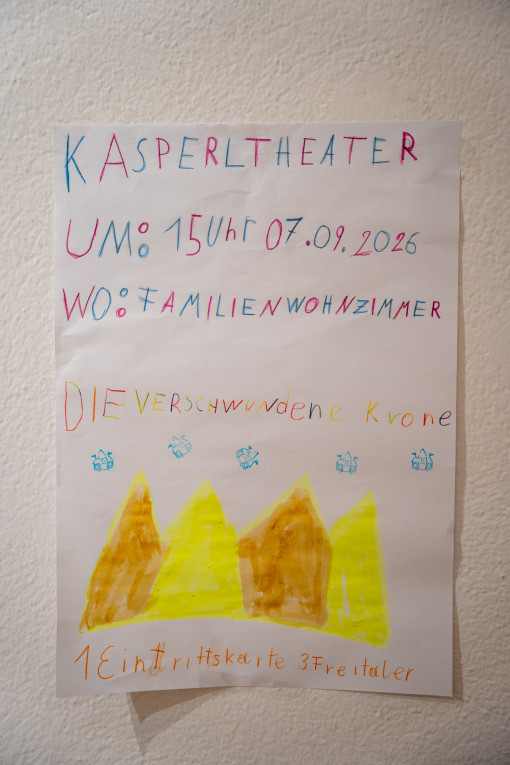 KASPERLTHEATER
UM: 15Uhr 07.09.2026
WO: FAMILIENWOHNZIMMER
DIE VERSCHWUNDene Krone
1 Eintrittskarte 3 Freitaler